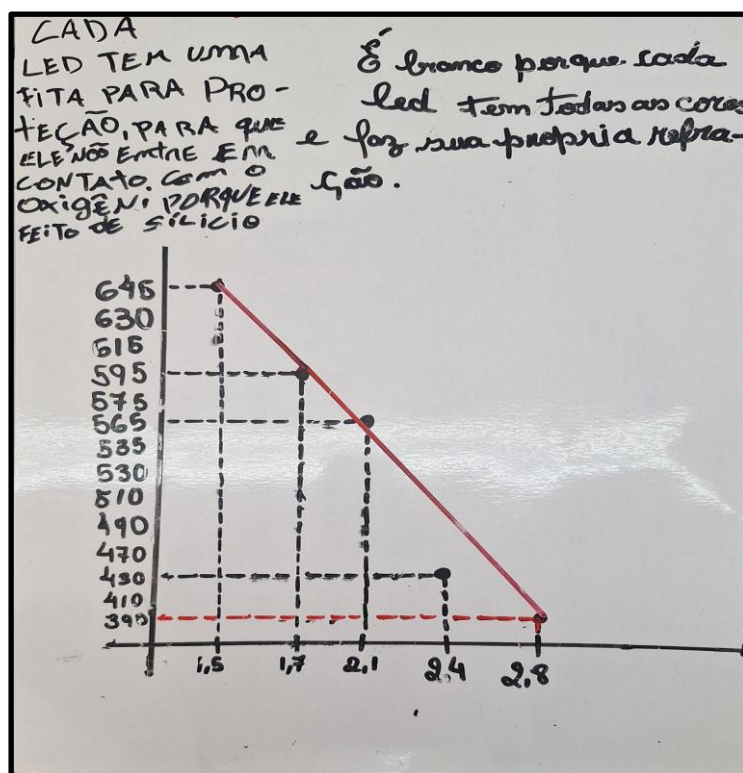 CADA
LED TEM UMA
FITA PARA PRO-
TEÇÃO, PARA QUE
ELE NÕO ENTRE EM
CONTATO. COM O
OXIGÊNI PORQUE ELE
FEITO DE SÍLICIO
É branco porque cada
led tem todas as cores
e faz sua propria refra-
ção.
645
630
615
595
575
565
535
530
510
490
470
430
410
390
1,5 1,7 2,1 2,4 2,8